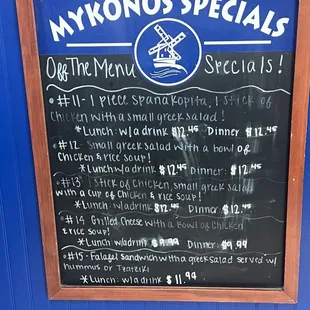 MYKONOS SPECIALS
Off The Menu Specials!
#11 - 1 piece spanakopita, 1 stick of
chicken with a small greek salad!
*Lunch: w/a drink $12.45 Dinner $12.45
#12 Small greek salad with a bowl of
Chicken & rice soup!
*Lunch w/a drink $12.45 Dinner: $12.45
#13 1 stick of chicken, small greek salad
with a cup of chicken & rice soup!
*Lunch: w/a drink $12.45 Dinner: $12.45
#14 Grilled Cheese with a Bowl of Chicken
& rice soup!
*Lunch w/a drink $9.99 Dinner: $9.99
#15 - Falafel Sandwich with a greek salad served w/
hummus or Tzatziki
*Lunch: w/a drink $11.99